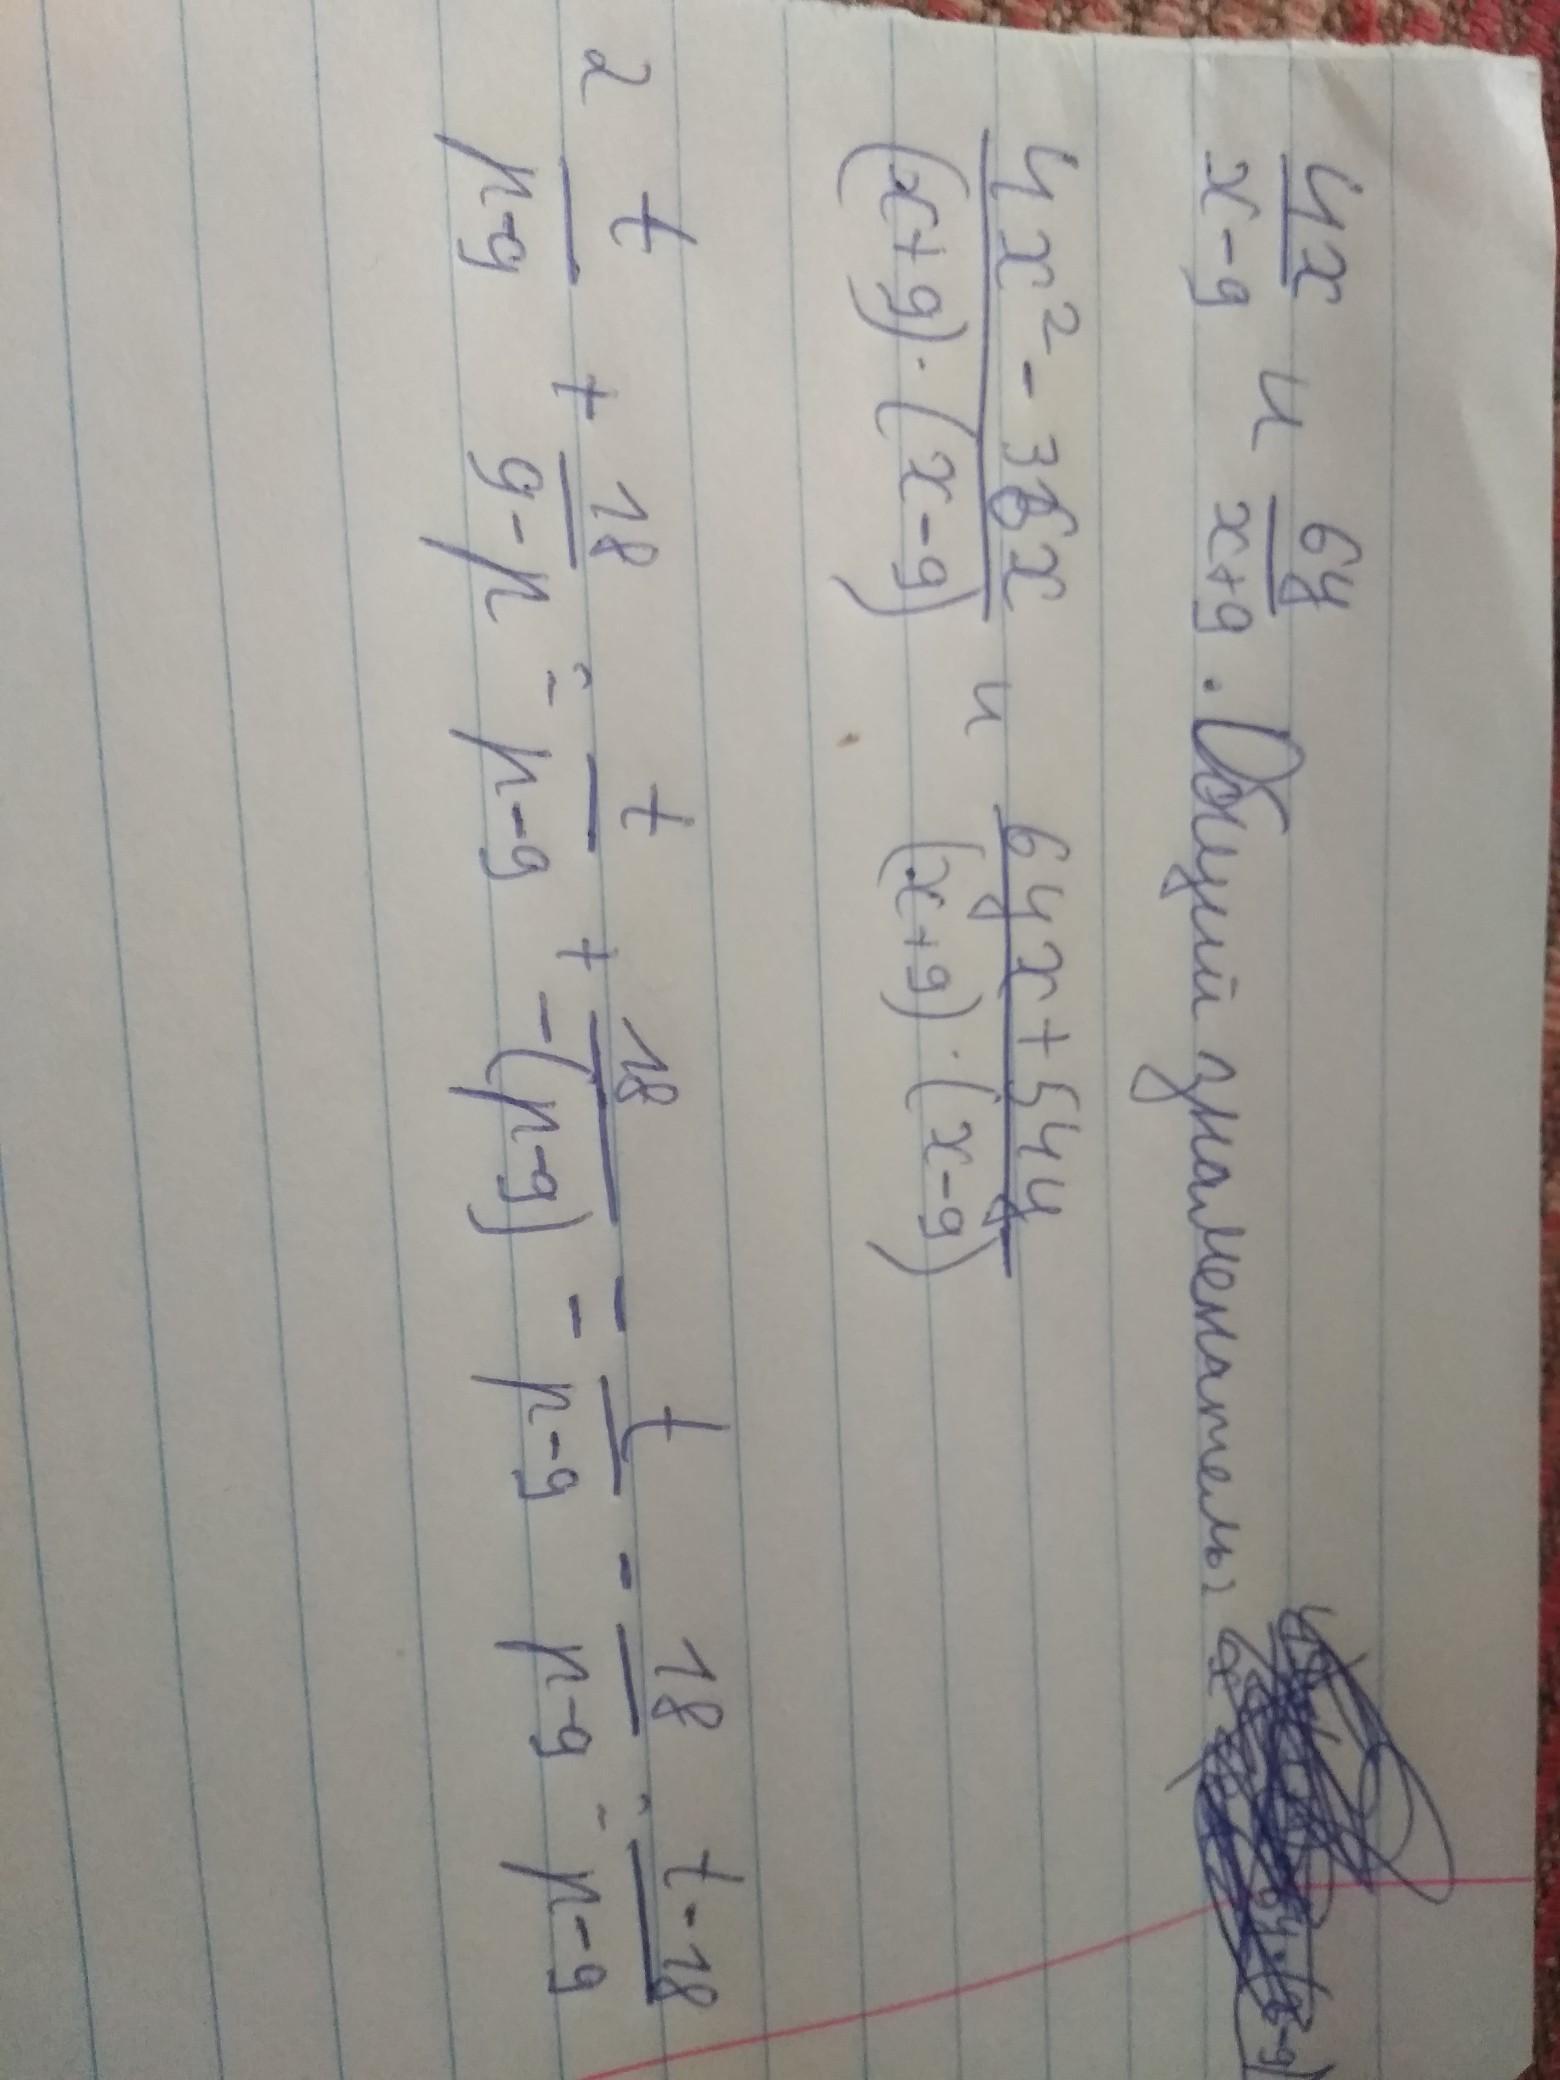 4x/(x-9) и 6y/(x+9). Общий знаменатель:
(4x²-36x)/((x+9)·(x-9)) и (6yx+54y)/((x+9)·(x-9))
2 t/(p-9) + 18/(9-p) = t/(p-9) + 18/(-(p-9)) = t/(p-9) - 18/(p-9) = (t-18)/(p-9)